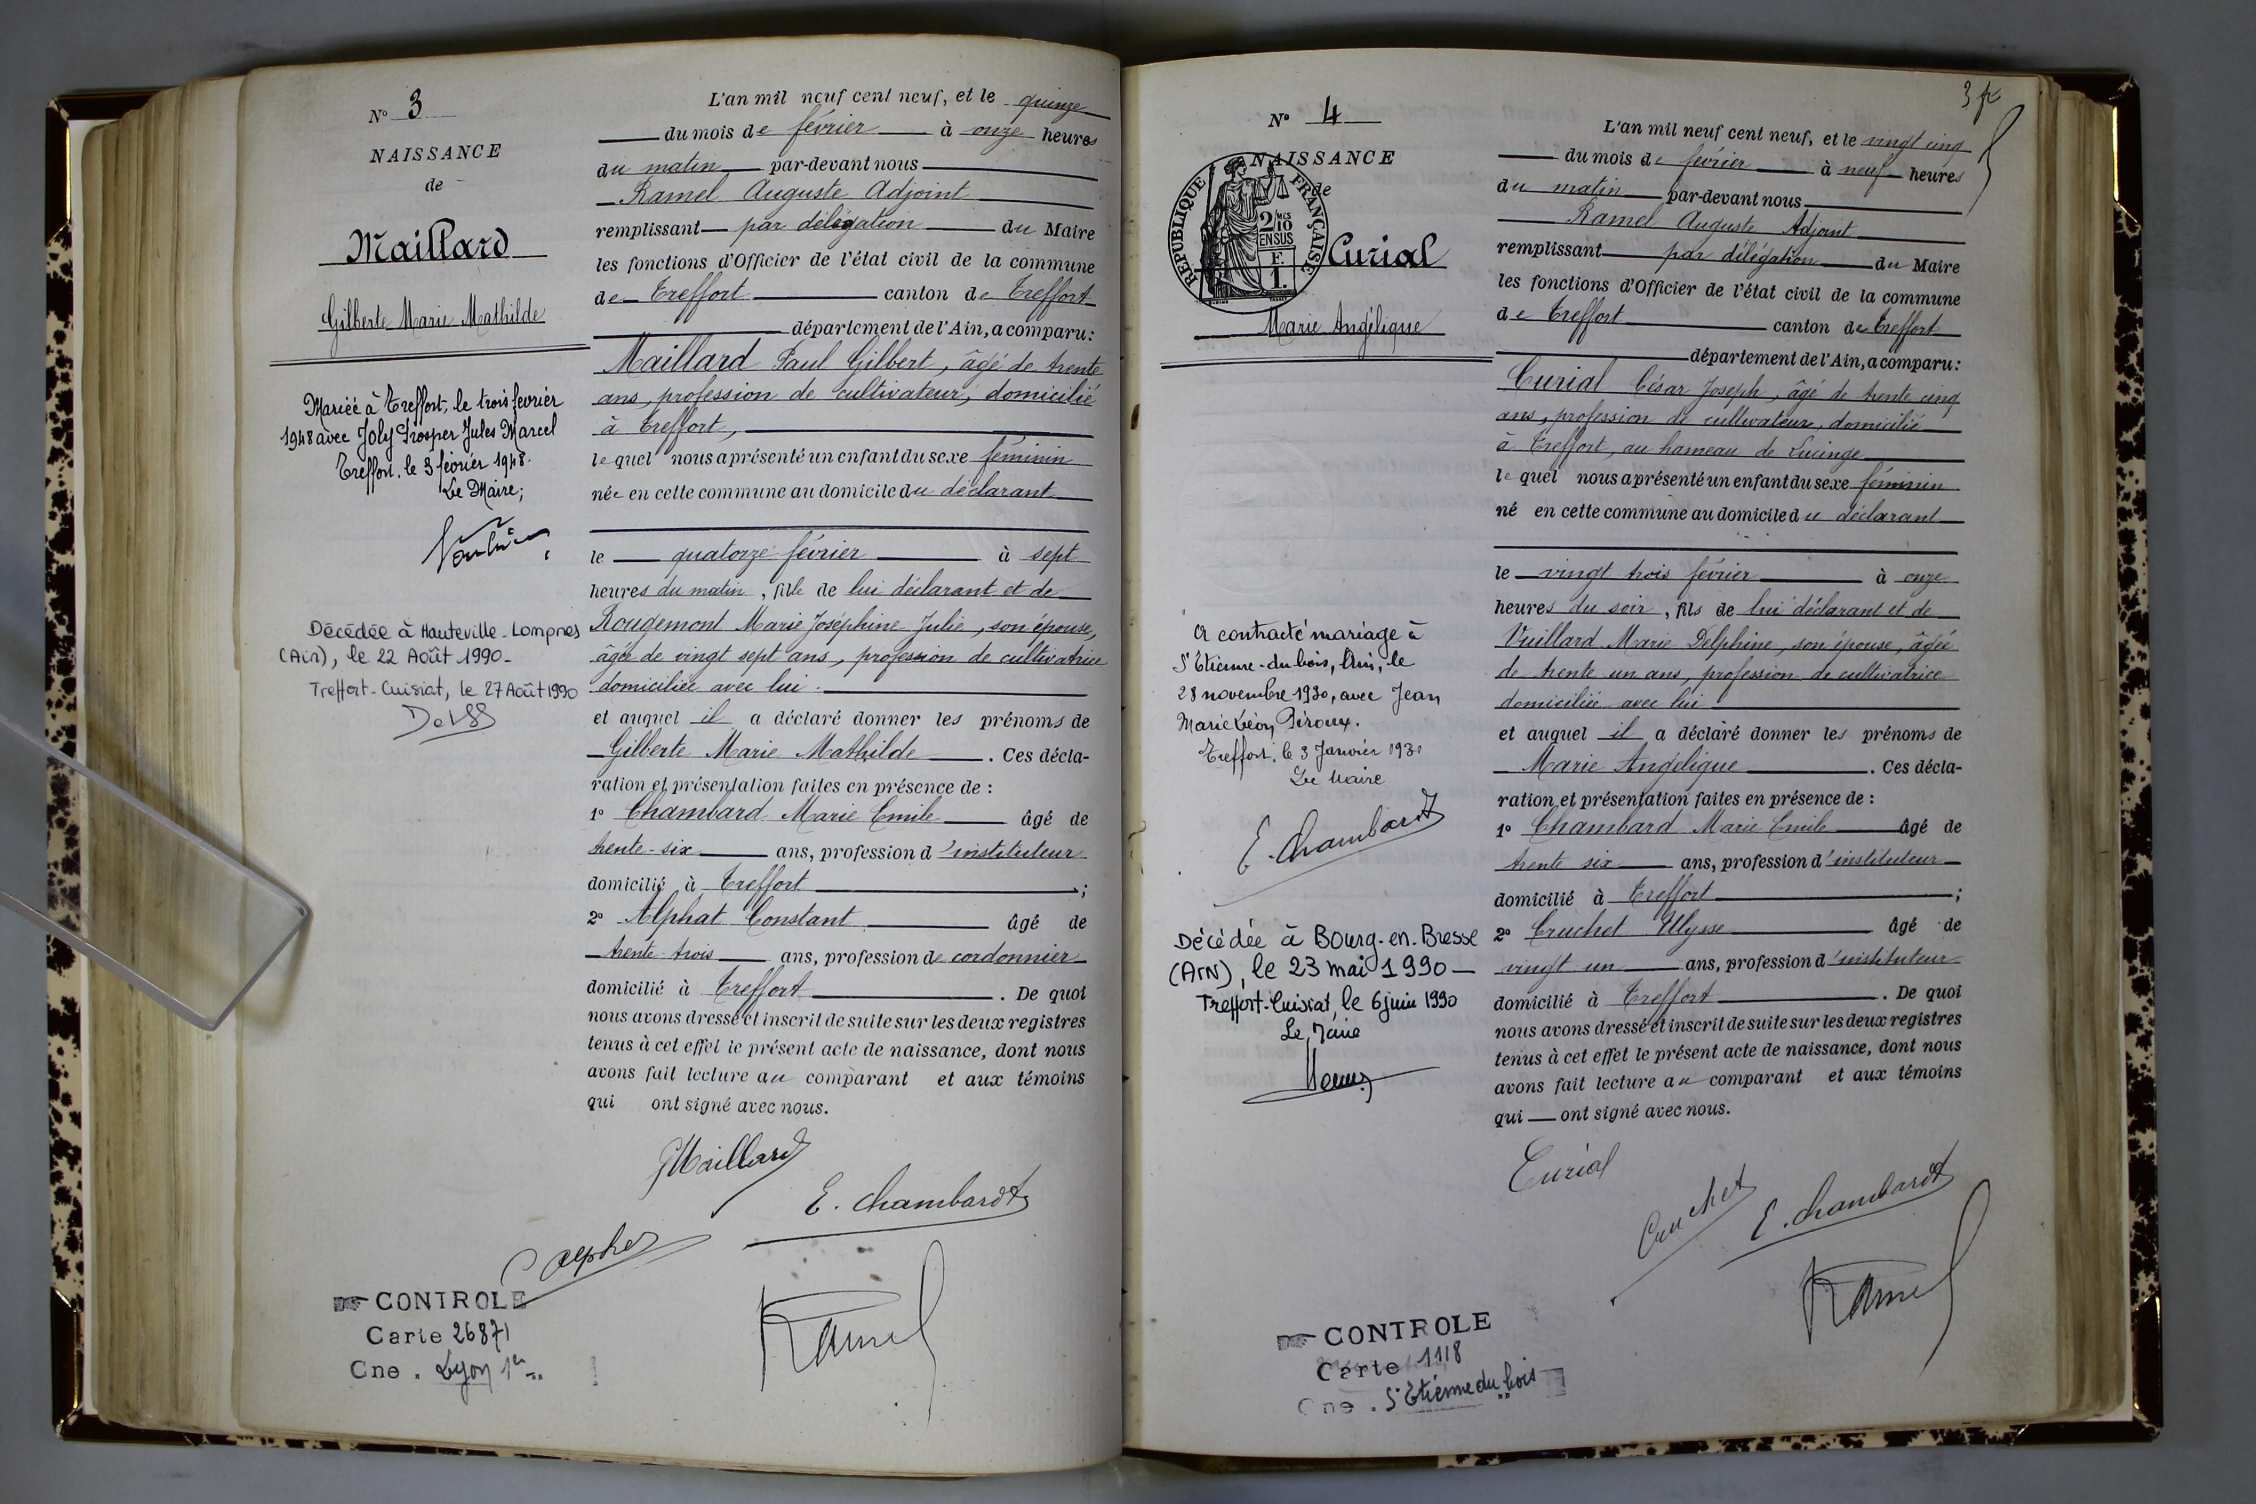 N° 3
NAISSANCE
de
Maillard
Gilberte Marie Mathilde
Mariée à Treffort, le trois février
1948 avec Joly Prosper Jules Marcel
Treffort, le 3 février 1948.
Le Maire;
Décédée à Hauteville-Lompnes
(Ain), le 22 Août 1990-
Treffort-Cuisiat, le 27 Août 1990
CONTROLE
Carte 26871
Cne. Lyon 1er
L'an mil neuf cent neuf, et le quinze
du mois de février à onze heures
du matin par-devant nous
Ramel Auguste Adjoint
remplissant par délégation du Maire
les fonctions d'Officier de l'état civil de la commune
de Treffort canton de Treffort
département de l'Ain, a comparu:
Maillard Paul Gilbert, âgé de trente
ans, profession de cultivateur, domicilié
à Treffort,
lequel nous a présenté un enfant du sexe féminin
née en cette commune au domicile du déclarant
le quatorze février à sept
heures du matin, fille de lui déclarant et de
Rougemont Marie Joséphine Julie, son épouse,
âgée de vingt sept ans, profession de cultivatrice
domiciliée avec lui.
et auquel il a déclaré donner les prénoms de
Gilberte Marie Mathilde. Ces décla-
ration et présentation faites en présence de :
1° Chambard Marie Emile âgé de
trente-six ans, profession d'instituteur
domicilié à Treffort;
2° Alphat Constant âgé de
trente-trois ans, profession de cordonnier
domicilié à Treffort. De quoi
nous avons dressé et inscrit de suite sur les deux registres
tenus à cet effet le présent acte de naissance, dont nous
avons fait lecture au comparant et aux témoins
qui ont signé avec nous.
Maillard
E. Chambard
Ramel
3 fr
N° 4
NAISSANCE
de
REPUBLIQUE FRANÇAISE
2/10 EN SUS
F. 1.
Curial
Marie Angélique
A contracté mariage à
St Etienne-du-bois, Ain, le
28 novembre 1930, avec Jean
Marie Léon Péroux.
Treffort, le 3 Janvier 1931
Le Maire
E. Chambard
Décédée à Bourg-en-Bresse
(Ain), le 23 mai 1990-
Treffort-Cuisiat, le 6 juin 1990
Le Maire
CONTROLE
Carte 1118
Cne. St Etienne du bois
L'an mil neuf cent neuf, et le vingt cinq
du mois de février à neuf heures
du matin par-devant nous
Ramel Auguste Adjoint
remplissant par délégation du Maire
les fonctions d'Officier de l'état civil de la commune
de Treffort canton de Treffort
département de l'Ain, a comparu:
Curial César Joseph, âgé de trente cinq
ans, profession de cultivateur, domicilié
à Treffort, au hameau de Lucinge
lequel nous a présenté un enfant du sexe féminin
né en cette commune au domicile du déclarant
le vingt trois février à onze
heures du soir, fils de lui déclarant et de
Vuillard Marie Delphine, son épouse, âgée
de trente un ans, profession de cultivatrice
domiciliée avec lui
et auquel il a déclaré donner les prénoms de
Marie Angélique. Ces décla-
ration et présentation faites en présence de :
1° Chambard Marie Emile âgé de
trente six ans, profession d'instituteur
domicilié à Treffort;
2° Cruchet Ulysse âgé de
vingt un ans, profession d'instituteur
domicilié à Treffort. De quoi
nous avons dressé et inscrit de suite sur les deux registres
tenus à cet effet le présent acte de naissance, dont nous
avons fait lecture au comparant et aux témoins
qui ont signé avec nous.
Curial
Cruchet
E. Chambard
Ramel